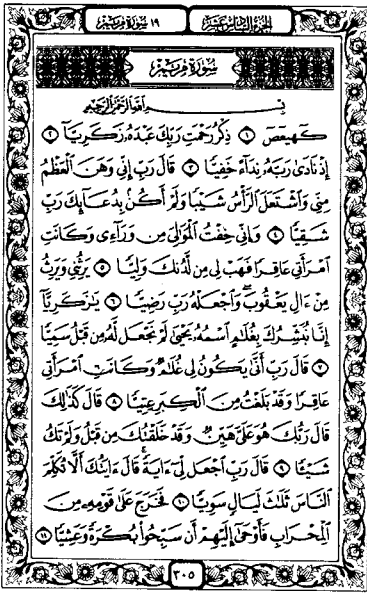 الجزء السادس عشر
١٩ سورة مريم
سورة مريم
بِسْمِ اللَّهِ الرَّحْمَٰنِ الرَّحِيمِ
كهيعص ١ ذِكْرُ رَحْمَتِ رَبِّكَ عَبْدَهُ زَكَرِيَّا ٢
إِذْ نَادَىٰ رَبَّهُ نِدَاءً خَفِيًّا ٣ قَالَ رَبِّ إِنِّي وَهَنَ الْعَظْمُ
مِنِّي وَاشْتَعَلَ الرَّأْسُ شَيْبًا وَلَمْ أَكُن بِدُعَائِكَ رَبِّ
شَقِيًّا ٤ وَإِنِّي خِفْتُ الْمَوَالِيَ مِن وَرَاءِي وَكَانَتِ
امْرَأَتِي عَاقِرًا فَهَبْ لِي مِن لَّدُنكَ وَلِيًّا ٥ يَرِثُنِي وَيَرِثُ
مِنْ ءَالِ يَعْقُوبَ ۖ وَاجْعَلْهُ رَبِّ رَضِيًّا ٦ يَٰزَكَرِيَّا
إِنَّا نُبَشِّرُكَ بِغُلَٰمٍ اسْمُهُ يَحْيَىٰ لَمْ نَجْعَل لَّهُ مِن قَبْلُ سَمِيًّا
٧ قَالَ رَبِّ أَنَّىٰ يَكُونُ لِي غُلَٰمٌ وَكَانَتِ امْرَأَتِي
عَاقِرًا وَقَدْ بَلَغْتُ مِنَ الْكِبَرِ عِتِيًّا ٨ قَالَ كَذَٰلِكَ
قَالَ رَبُّكَ هُوَ عَلَيَّ هَيِّنٌ وَقَدْ خَلَقْتُكَ مِن قَبْلُ وَلَمْ تَكُ
شَيْئًا ٩ قَالَ رَبِّ اجْعَل لِّي ءَايَةً ۚ قَالَ ءَايَتُكَ أَلَّا تُكَلِّمَ
النَّاسَ ثَلَٰثَ لَيَالٍ سَوِيًّا ١٠ فَخَرَجَ عَلَىٰ قَوْمِهِ مِنَ
الْمِحْرَابِ فَأَوْحَىٰ إِلَيْهِمْ أَن سَبِّحُوا بُكْرَةً وَعَشِيًّا ١١
٣٠٥